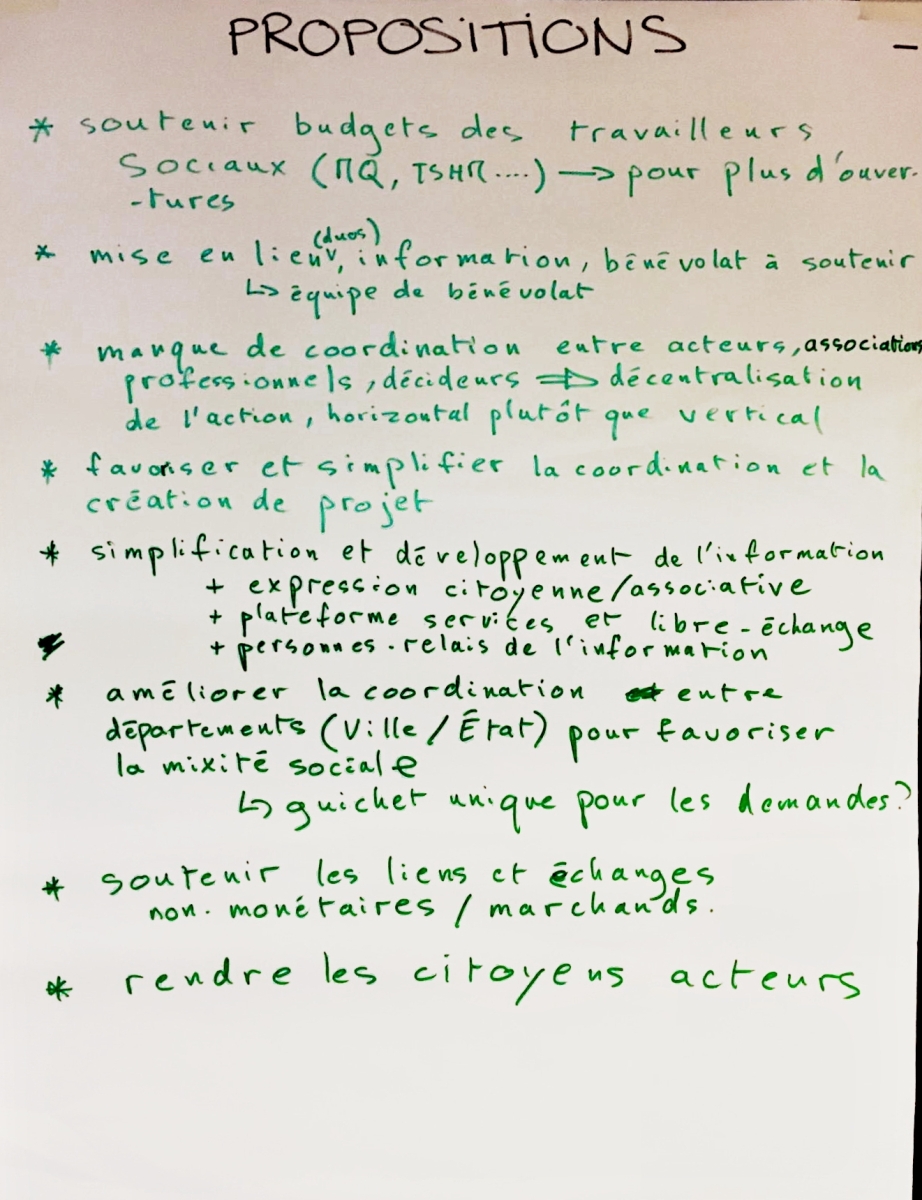 PROPOSITIONS
* soutenir budgets des travailleurs
sociaux (MQ, TSHM....) → pour plus d'ouver-
-tures
(duos)
* mise en lien, information, bénévolat à soutenir
↳ équipe de bénévolat
* manque de coordination entre acteurs, associations
professionnels, décideurs ⇒ décentralisation
de l'action, horizontal plutôt que vertical
* favoriser et simplifier la coordination et la
création de projet
* simplification et développement de l'information
+ expression citoyenne/associative
+ plateforme services et libre-échange
+ personnes-relais de l'information
* améliorer la coordination entre
départements (Ville / État) pour favoriser
la mixité sociale
↳ guichet unique pour les demandes?
* soutenir les liens et échanges
non-monétaires / marchands.
* rendre les citoyens acteurs